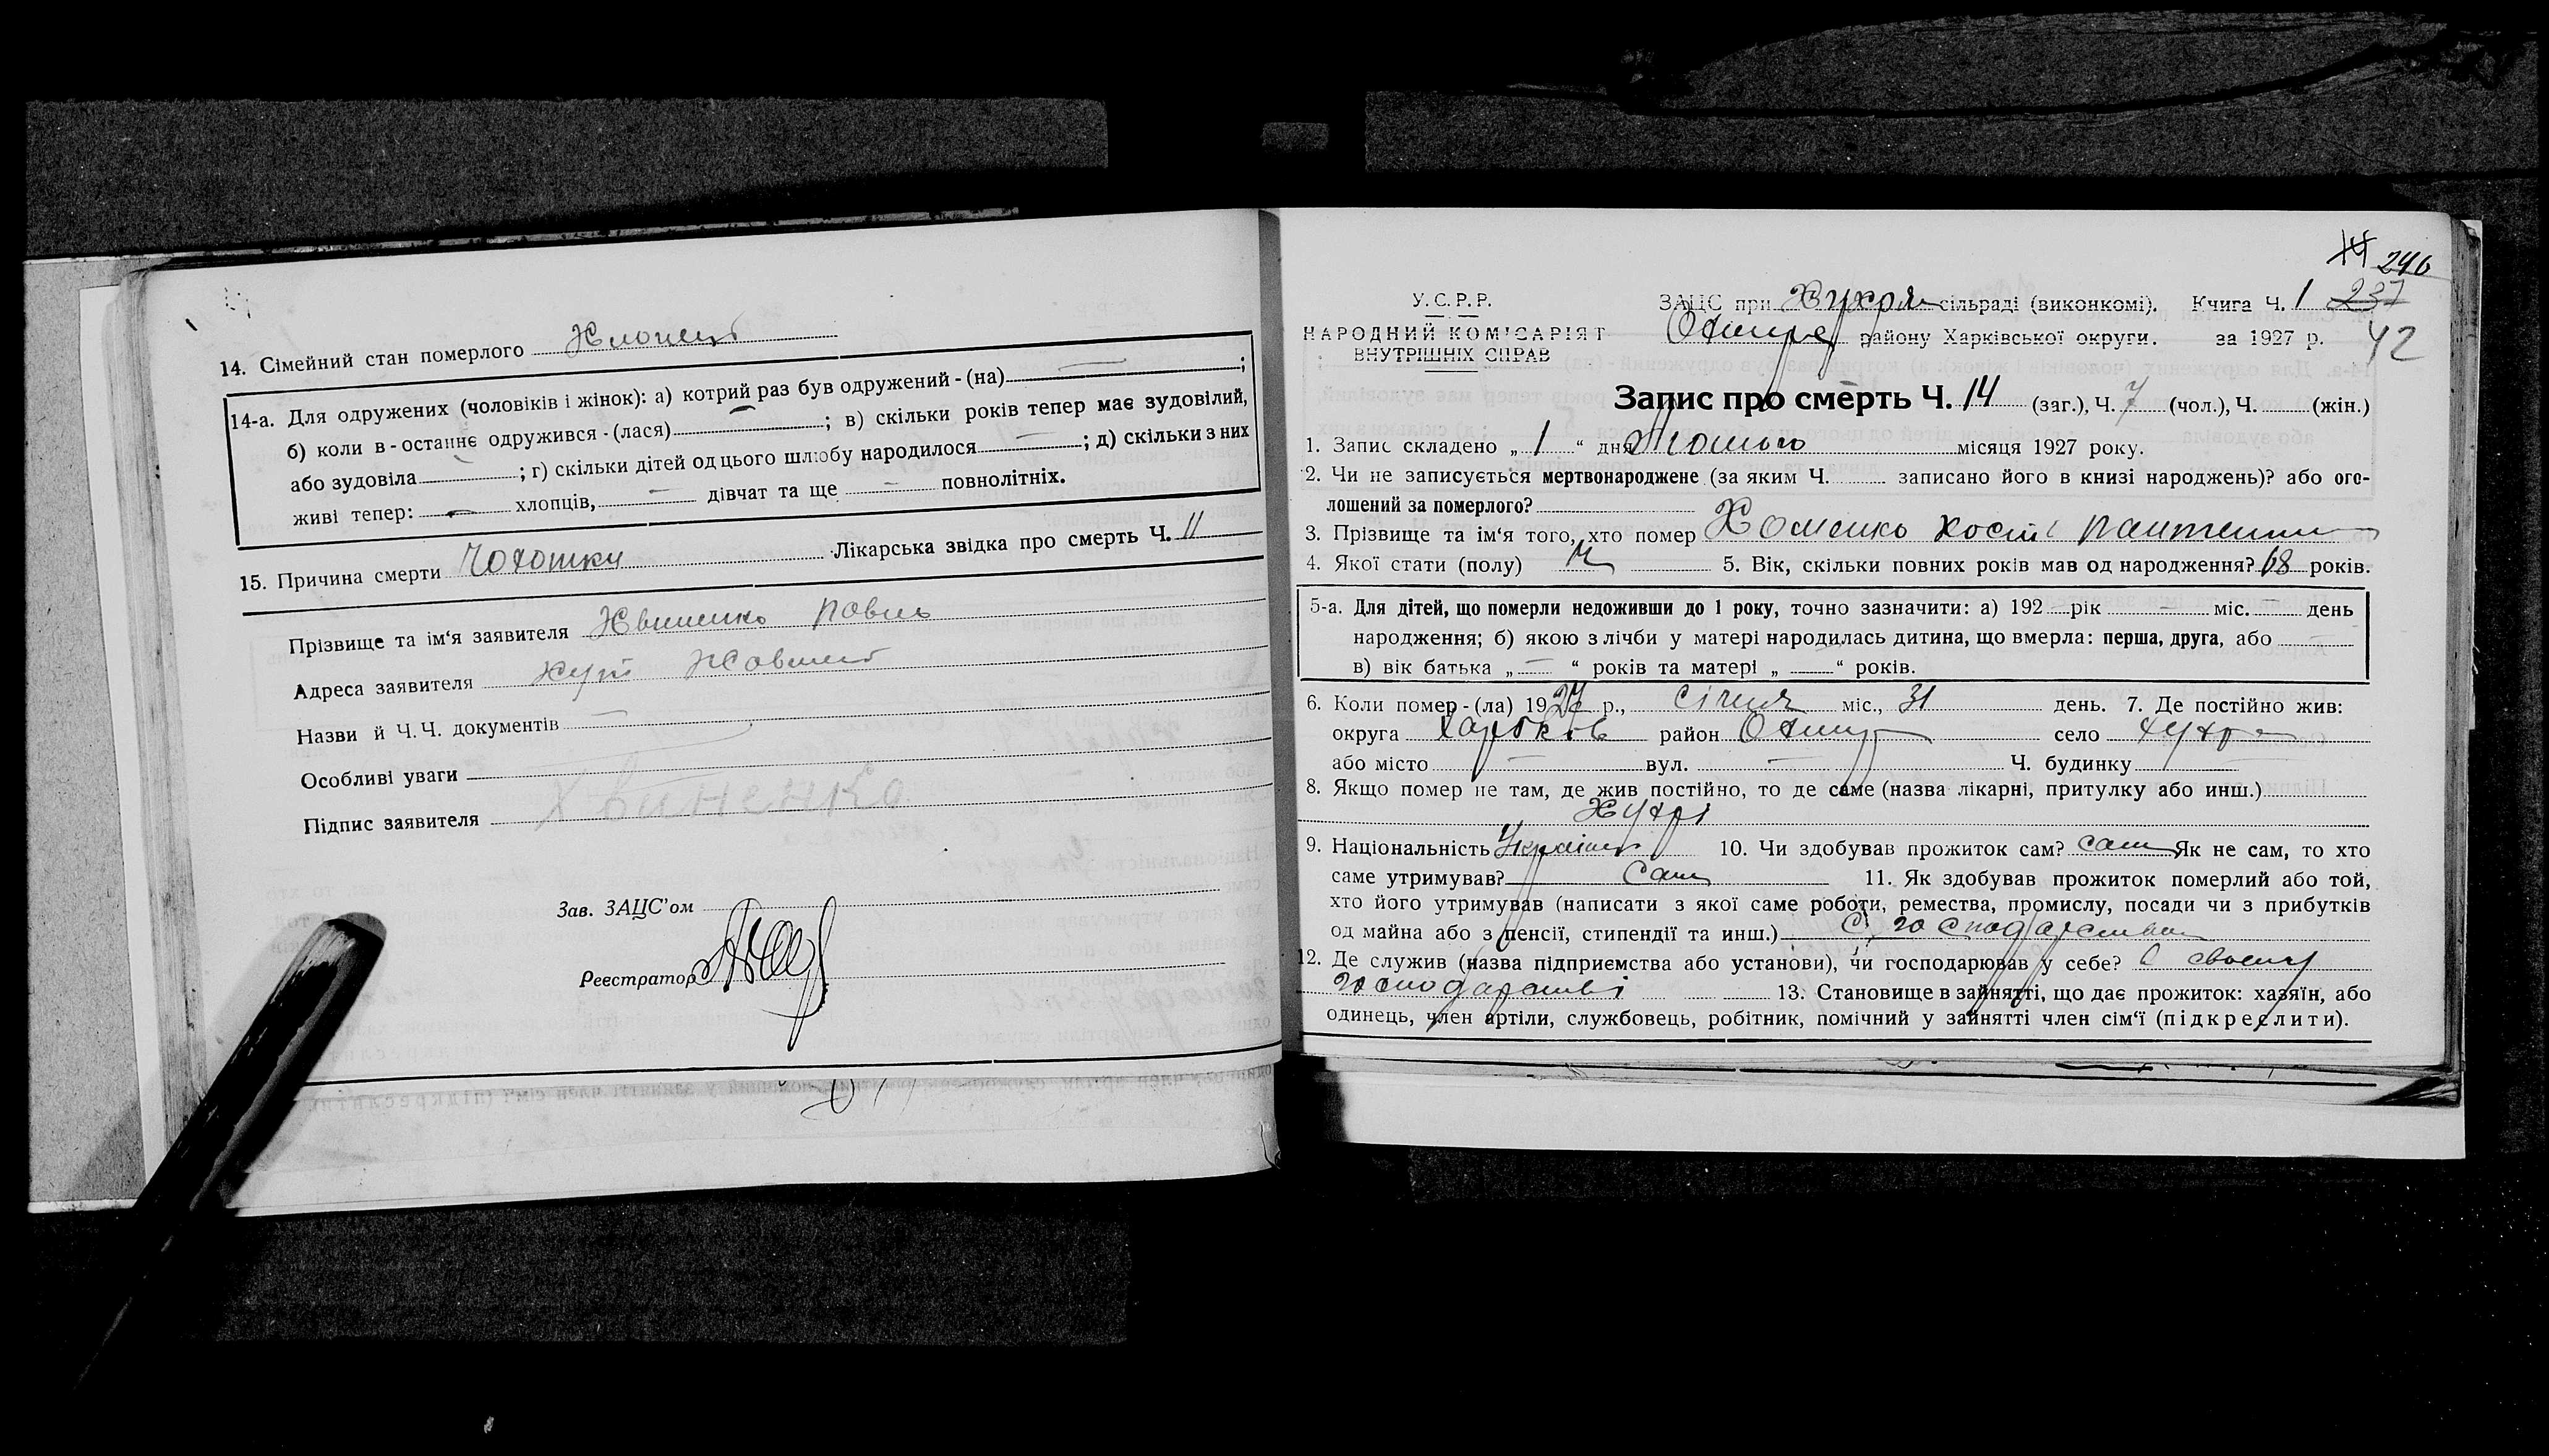 14. Сімейний стан померлого Хлопець
14-а. Для одружених (чоловіків і жінок): а) котрий раз був одружений - (на) — ;
б) коли в-останнє одружився - (лася) — ; в) скільки років тепер має зудовілий,
або зудовіла ; г) скільки дітей од цього шлюбу народилося — ; д) скільки з них
живі тепер: — хлопців, — дівчат та ще — повнолітніх.
15. Причина смерти Лікарська звідка про смерть Ч. 11
Прізвище та ім'я заявителя Хвиненко Повил
Адреса заявителя хут
Назви й Ч. Ч. документів —
Особливі уваги
Підпис заявителя Хвиненко
Зав. ЗАЦС'ом
Реєстратор
240
У. С. Р. Р.
НАРОДНИЙ КОМІСАРІЯТ
ВНУТРІШНІХ СПРАВ
ЗАЦС при Хухрян сільраді (виконкомі). Книга Ч. 1 237
Охтирс району Харківської округи. за 1927 р. 42
Запис про смерть Ч. 14 (заг.), Ч. 7 (чол.), Ч. (жін.)
1. Запис складено „ 1 “ дня Лютого місяця 1927 року.
2. Чи не записується мертвонароджене (за яким Ч. записано його в книзі народжень)? або ого-
лошений за померлого?
3. Прізвище та ім'я того, хто помер Хоменко Кость
4. Якої стати (полу) Ч 5. Вік, скільки повних років мав од народження? 68 років.
5-а. Для дітей, що померли недоживши до 1 року, точно зазначити: а) 192 — рік — міс. — день
народження; б) якою з лічби у матері народилась дитина, що вмерла: перша, друга, або —
в) вік батька „ — “ років та матері „ — “ років.
6. Коли помер - (ла) 1927 р., Січня міс., 31 день. 7. Де постійно жив:
округа Харьков район Охтир село Хухра
або місто — вул. — Ч. будинку —
8. Якщо помер не там, де жив постійно, то де саме (назва лікарні, притулку або инш.)
Хухрі
9. Національність Українець 10. Чи здобував прожиток сам? сам Як не сам, то хто
саме утримував? Сам 11. Як здобував прожиток померлий або той,
хто його утримував (написати з якої саме роботи, ремества, промислу, посади чи з прибутків
од майна або з пенсії, стипендії та инш.) С, господарством
12. Де служив (назва підприємства або установи), чи господарював у себе? В своєму
господарстві 13. Становище в зайнятті, що дає прожиток: хазяїн, або
одинець, член артіли, службовець, робітник, помічний у зайнятті член сім'ї (підкреслити).